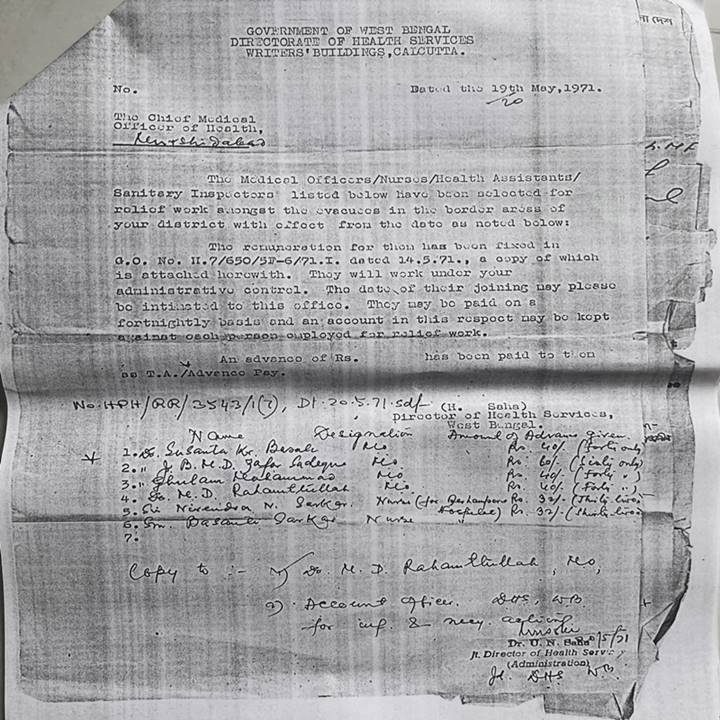 GOVERNMENT OF WEST BENGAL
DIRECTORATE OF HEALTH SERVICES
WRITERS' BUILDINGS, CALCUTTA.
No. Dated the 19th May, 1971.
20
The Chief Medical
Officer of Health,
Murshidabad
The Medical Officers/Nurses/Health Assistants/
Sanitary Inspectors listed below have been selected for
relief work amongst the evacuees in the border areas of
your district with effect from the date as noted below:
The remuneration for them has been fixed in
G.O. No. II.7/650/5F-6/71.I. dated 14.5.71., a copy of which
is attached herewith. They will work under your
administrative control. The date of their joining may please
be intimated to this office. They may be paid on a
fortnightly basis and an account in this respect may be kept
against each person employed for relief work.
An advance of Rs. has been paid to them
as T.A./Advance Pay.
No. HPH/RR/3543/1(7), Dt. 20.5.71. sdf (H. Saha)
Director of Health Services,
West Bengal.
Name Designation Amount of Advance given.
1. Dr. Susanta Kr. MO Rs. 40/- (Forty only)
2. " J. B. M. D. Zafar Sadeque MO Rs. 60/- (Sixty only)
3. " Ghulam Mohammad MO Rs. 40/- (Forty ")
4. Dr. M. D. Rahamtullah MO Rs. 40/- (Forty ")
5. Sri Nirendra N. Sarkar. Nurse (for Hospital) Rs. 32/-
6. Sm. Basanti Sarkar Nurse " Rs. 32/-
7.
Copy to :- 1) Dr. M. D. Rahamtullah, MO,
2) Account Officer. DHS, WB
for inf. & necy. action
20/5/71
Dr. U. N. Saha
Jt. Director of Health Service
(Administration)
Jt. DHS WB.